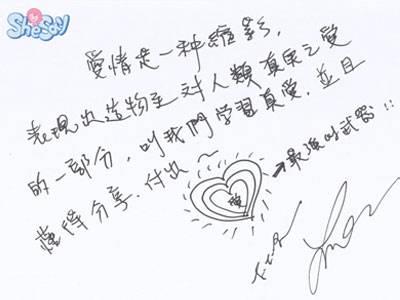 SheSay
愛情是一种縮影,
表現出造物主对人類真实之愛
的一部分,叫我們學習真愛,並且
懂得分享.付出~
愛
→最強的武器!!